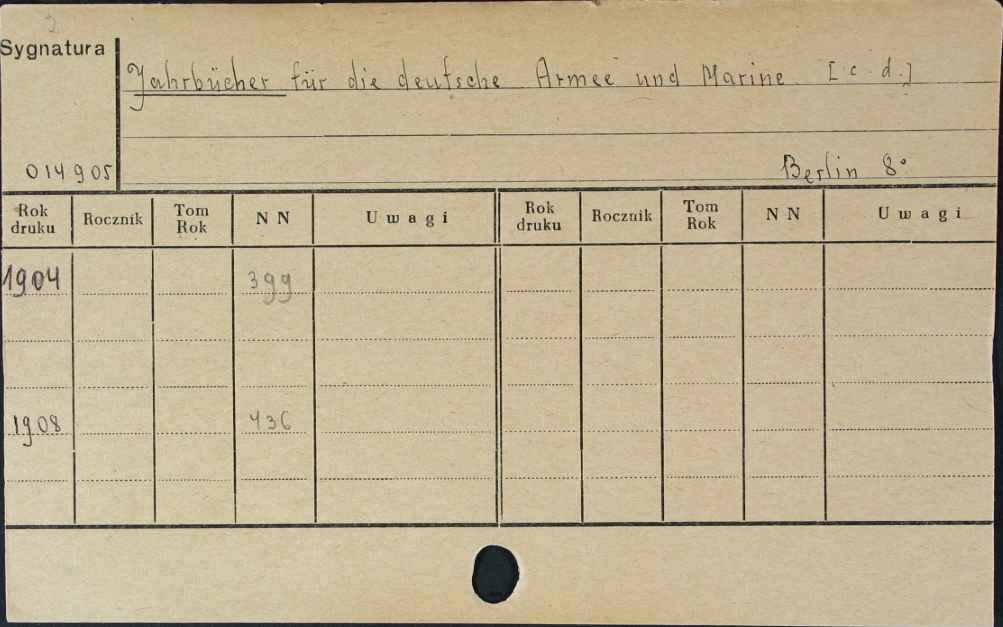 2
Sygnatura
Jahrbücher für die deutsche Armee und Marine [c.d.]
014905
Berlin 8°
Rok druku Rocznik Tom Rok NN Uwagi Rok druku Rocznik Tom Rok NN Uwagi
1904 399
1908 436